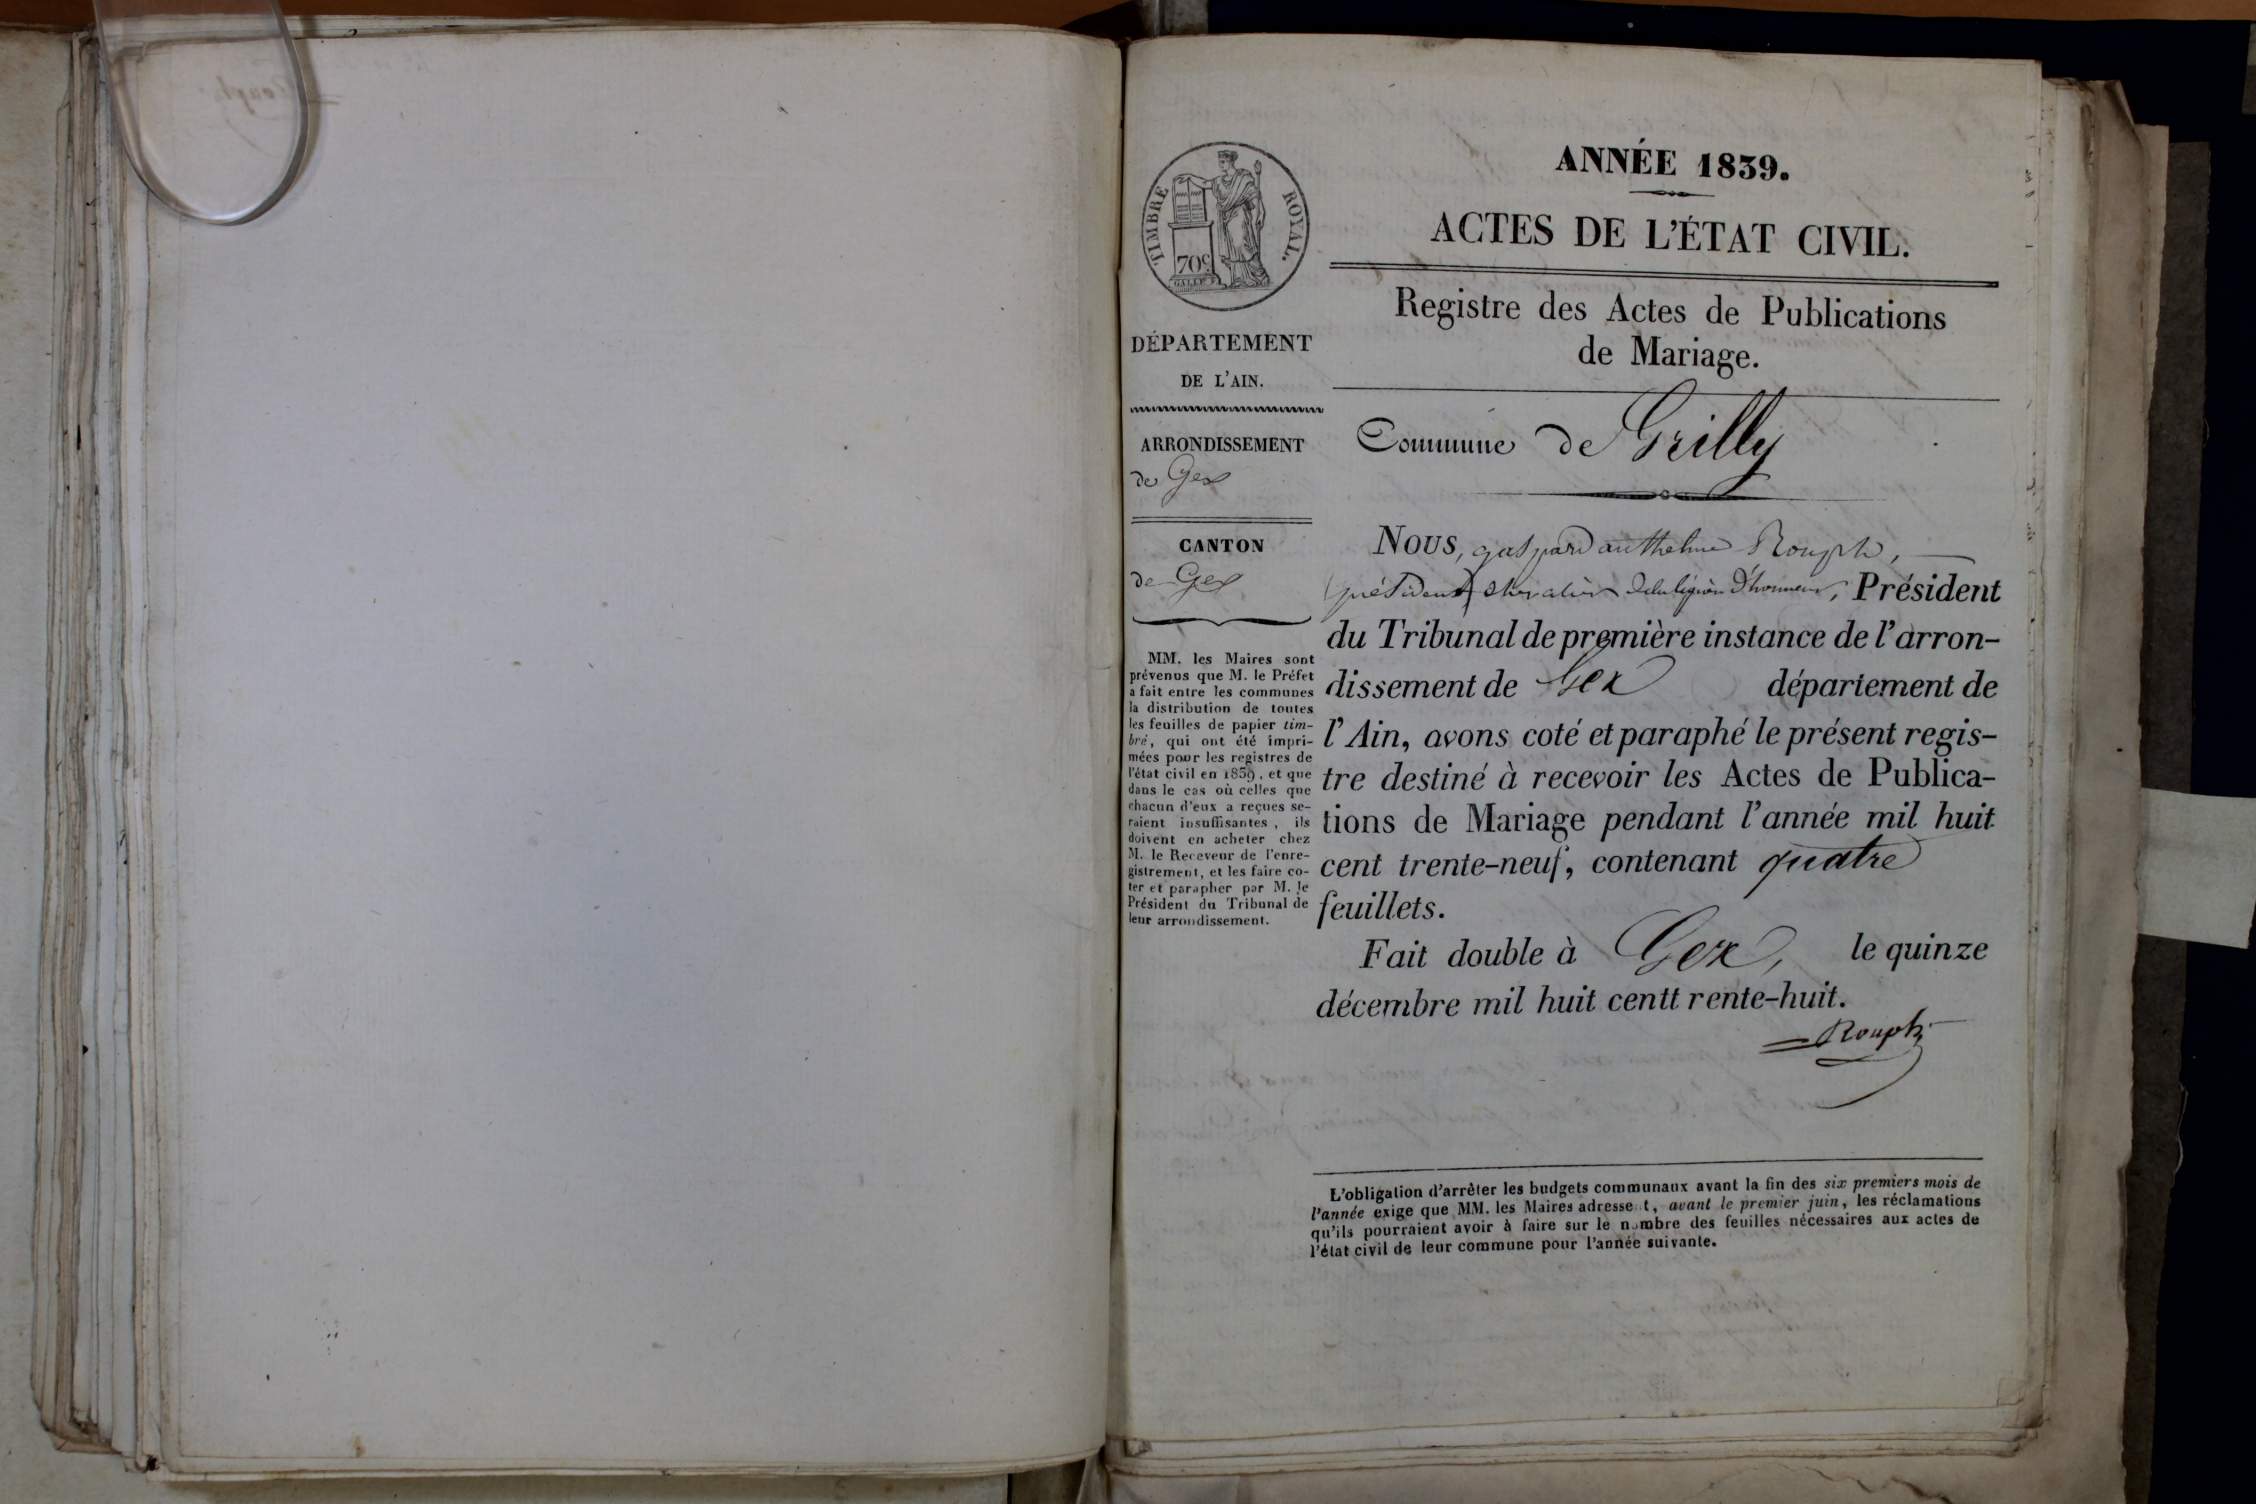 TIMBRE ROYAL.
70c.
GALLE
DÉPARTEMENT
DE L'AIN.
ARRONDISSEMENT
de Gex
CANTON
de Gex
MM. les Maires sont
prévenus que M. le Préfet
a fait entre les communes
la distribution de toutes
les feuilles de papier tim-
bré, qui ont été impri-
mées pour les registres de
l'état civil en 1839, et que
dans le cas où celles que
chacun d'eux a reçues se-
raient insuffisantes, ils
doivent en acheter chez
M. le Receveur de l'enre-
gistrement, et les faire co-
ter et parapher par M. le
Président du Tribunal de
leur arrondissement.
ANNÉE 1839.
ACTES DE L'ÉTAT CIVIL.
Registre des Actes de Publications
de Mariage.
Commune de Grilly
Nous, gaspard anthelme Rouph,
(président) chevalier de la légion d'honneur, Président
du Tribunal de première instance de l'arron-
dissement de Gex département de
l'Ain, avons coté et paraphé le présent regis-
tre destiné à recevoir les Actes de Publica-
tions de Mariage pendant l'année mil huit
cent trente-neuf, contenant quatre
feuillets.
Fait double à Gex, le quinze
décembre mil huit centt rente-huit.
Rouph
L'obligation d'arrêter les budgets communaux avant la fin des six premiers mois de
l'année exige que MM. les Maires adressent, avant le premier juin, les réclamations
qu'ils pourraient avoir à faire sur le nombre des feuilles nécessaires aux actes de
l'état civil de leur commune pour l'année suivante.